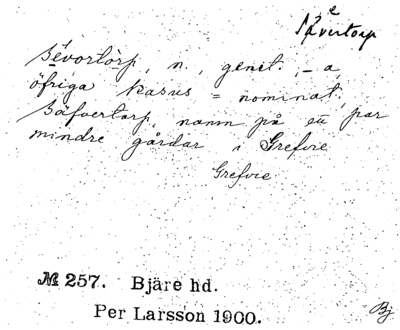 Sävertorp
Sévortòrp, n., genit. -a,
öfriga kasus = nominat.,
Säfvertorp, namn på ett par
mindre gårdar i Grefvie
Grefvie
№ 257. Bjäre hd.
Per Larsson 1900.
Bj.